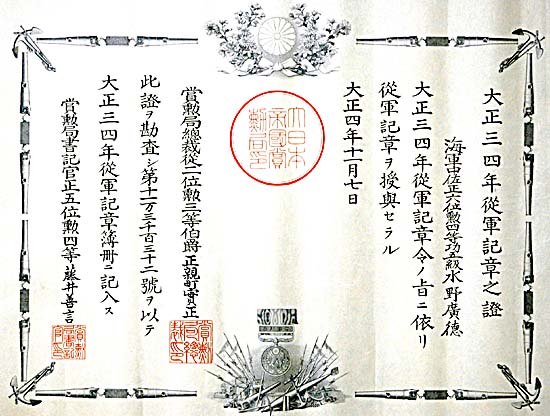 大正三四年從軍記章之證
海軍中佐正六位勲四等功五級水野廣德
大正三四年從軍記章令ノ旨ニ依リ
從軍記章ヲ授與セラル
大正四年十一月七日
大日本
帝國賞
勲局印
賞勲局總裁從二位勲三等伯爵正親町實正
此證ヲ勘査シ第十一万三千百三十二號ヲ以テ
大正三四年從軍記章簿冊ニ記入ス
賞勲局書記官正五位勲四等藤井善言